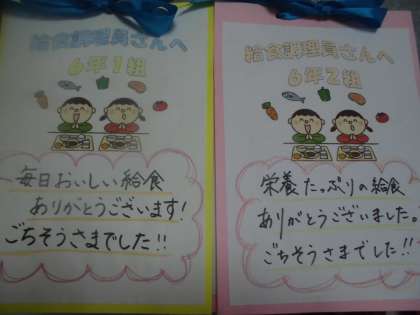 給食調理員さんへ
6年1組
毎日おいしい給食
ありがとうございます!
ごちそうさまでした!!
給食調理員さんへ
6年2組
栄養たっぷりの給食
ありがとうございました。
ごちそうさまでした!!